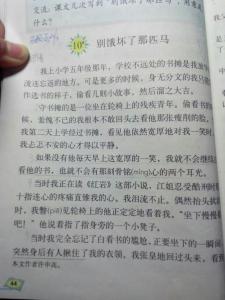 交流：课文几次写到“别饿坏了那匹马
什么？
10 别饿坏了那匹马
我上小学五年级那年，学校不远处的书摊是我放学
流连忘返的地方。可是更多的时候，身无分文的我只
作选书的样子，偷看几则小故事，然后溜之大吉。
守书摊的是一位坐在轮椅上的残疾青年。偷看书的
候，羞愧不已的我根本不敢回头去看他那张瘦削的脸。
我第二天上学经过书摊，看见他依然宽厚地对我一笑时
我忐忑不安的心才得以平静。
如果没有他每天早上这宽厚的一笑，我就不会继续
看他的书，也就不会有那刻骨铭(míng)心的两个耳光。
当时我正在读《红岩》这部小说，江姐忍受酷刑时
十指连心的疼痛直锥我的心。我泪流不止。偶然抬头
时，我瞥(piē)见轮椅上的他正定定地看着我。“坐下慢慢
吧！”他说着指了指身旁的一个小凳子。
当时我完全忘记了白看书的尴尬，正要坐下的一瞬
突然身后有人揪住了我的衣领。我张皇地回过头来，看
本文作者许申高。
44